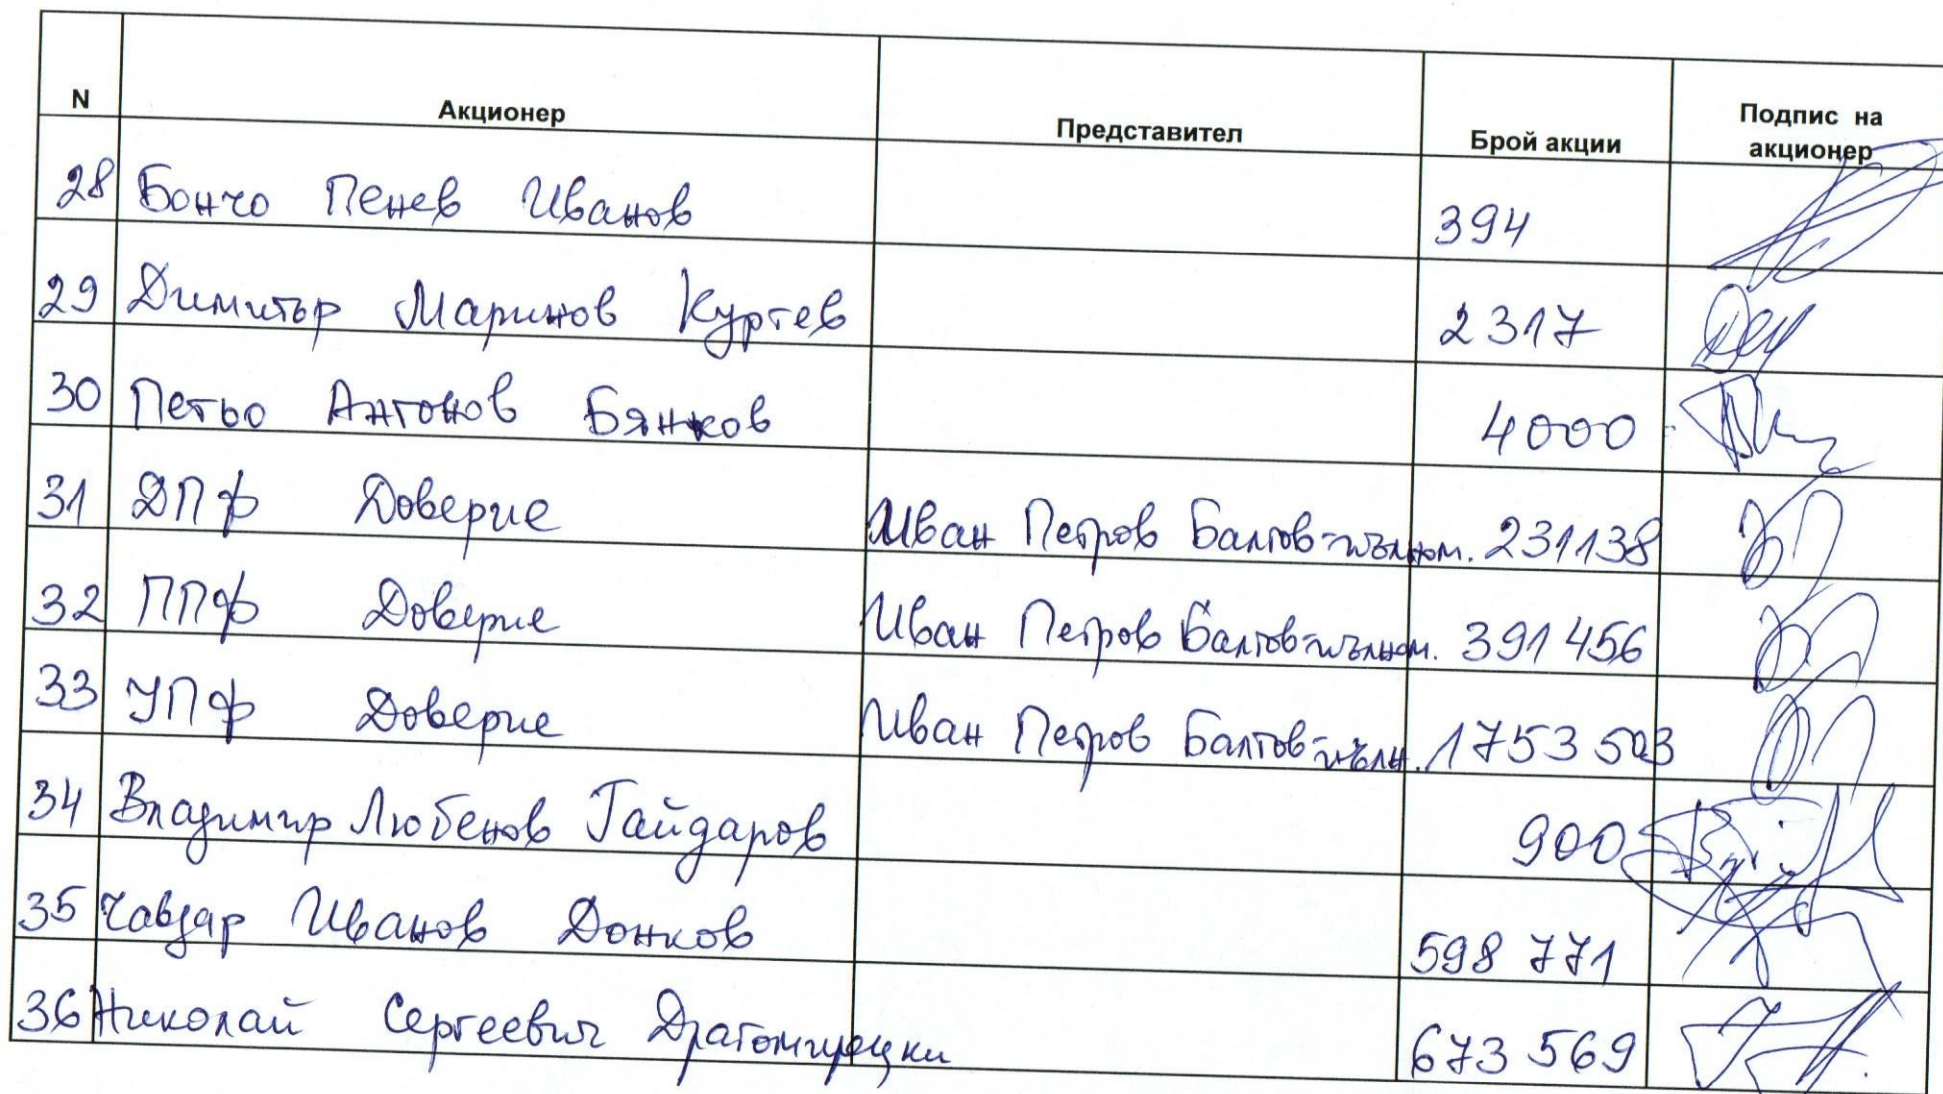 N Акционер Представител Брой акции Подпис на акционер
28 Бончо Пенев Иванов 394
29 Димитър Маринов Куртев 2317
30 Петьо Антонов Бянков 4000
31 ДПФ Доверие Иван Петров Балтов-пълном. 231138
32 ППФ Доверие Иван Петров Балтов-пълном. 391 456
33 УПФ Доверие Иван Петров Балтов-пълн. 1753 503
34 Владимир Любенов Гайдаров 900
35 Чавдар Иванов Донков 598 771
36 Николай Сергеевич Драгомирецки 673 569